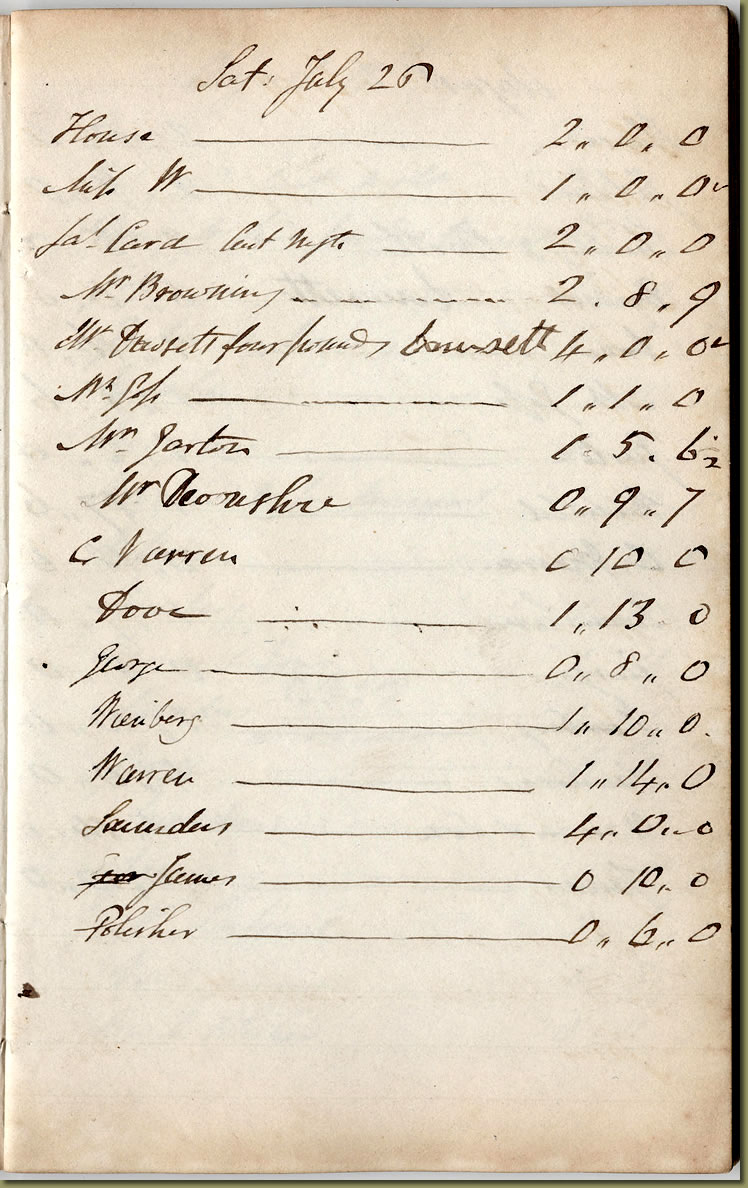 Sat: July 26
House 2 " 0 " 0
Miss W 1 " 0 " 0
Card 2 " 0 " 0
Mr Browning 2 . 8 " 9
Mr Dowsett four pounds Dowsett 4 " 0 " 0
Mr Goss 1 " 1 " 0
Garton 1 . 5 . 6½
Mr Devonshire 0 " 9 " 7
C Varren 0 10 0
Dove 1 " 13 0
George 0 " 8 " 0
Wienberg 1 " 10 " 0
Warren 1 " 14 " 0
Saunders 4 " 0 " 0
James 0 10 " 0
Polisher 0 " 6 " 0